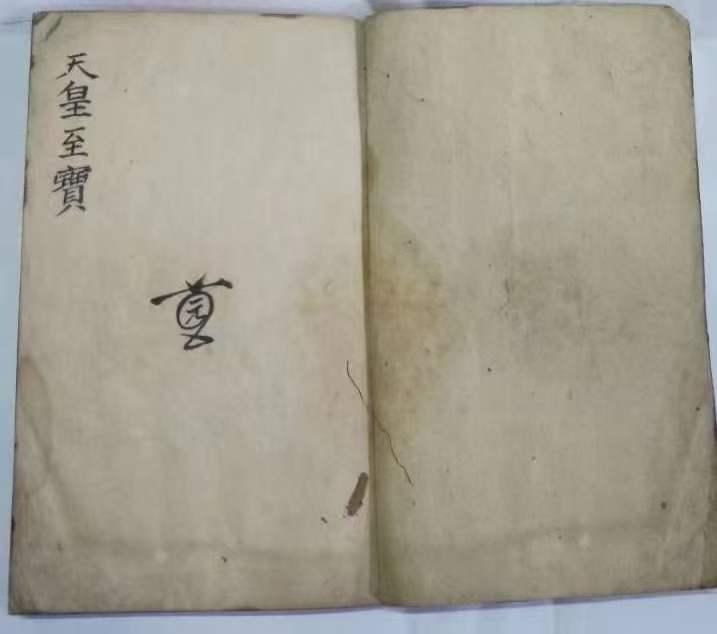 天皇至寶